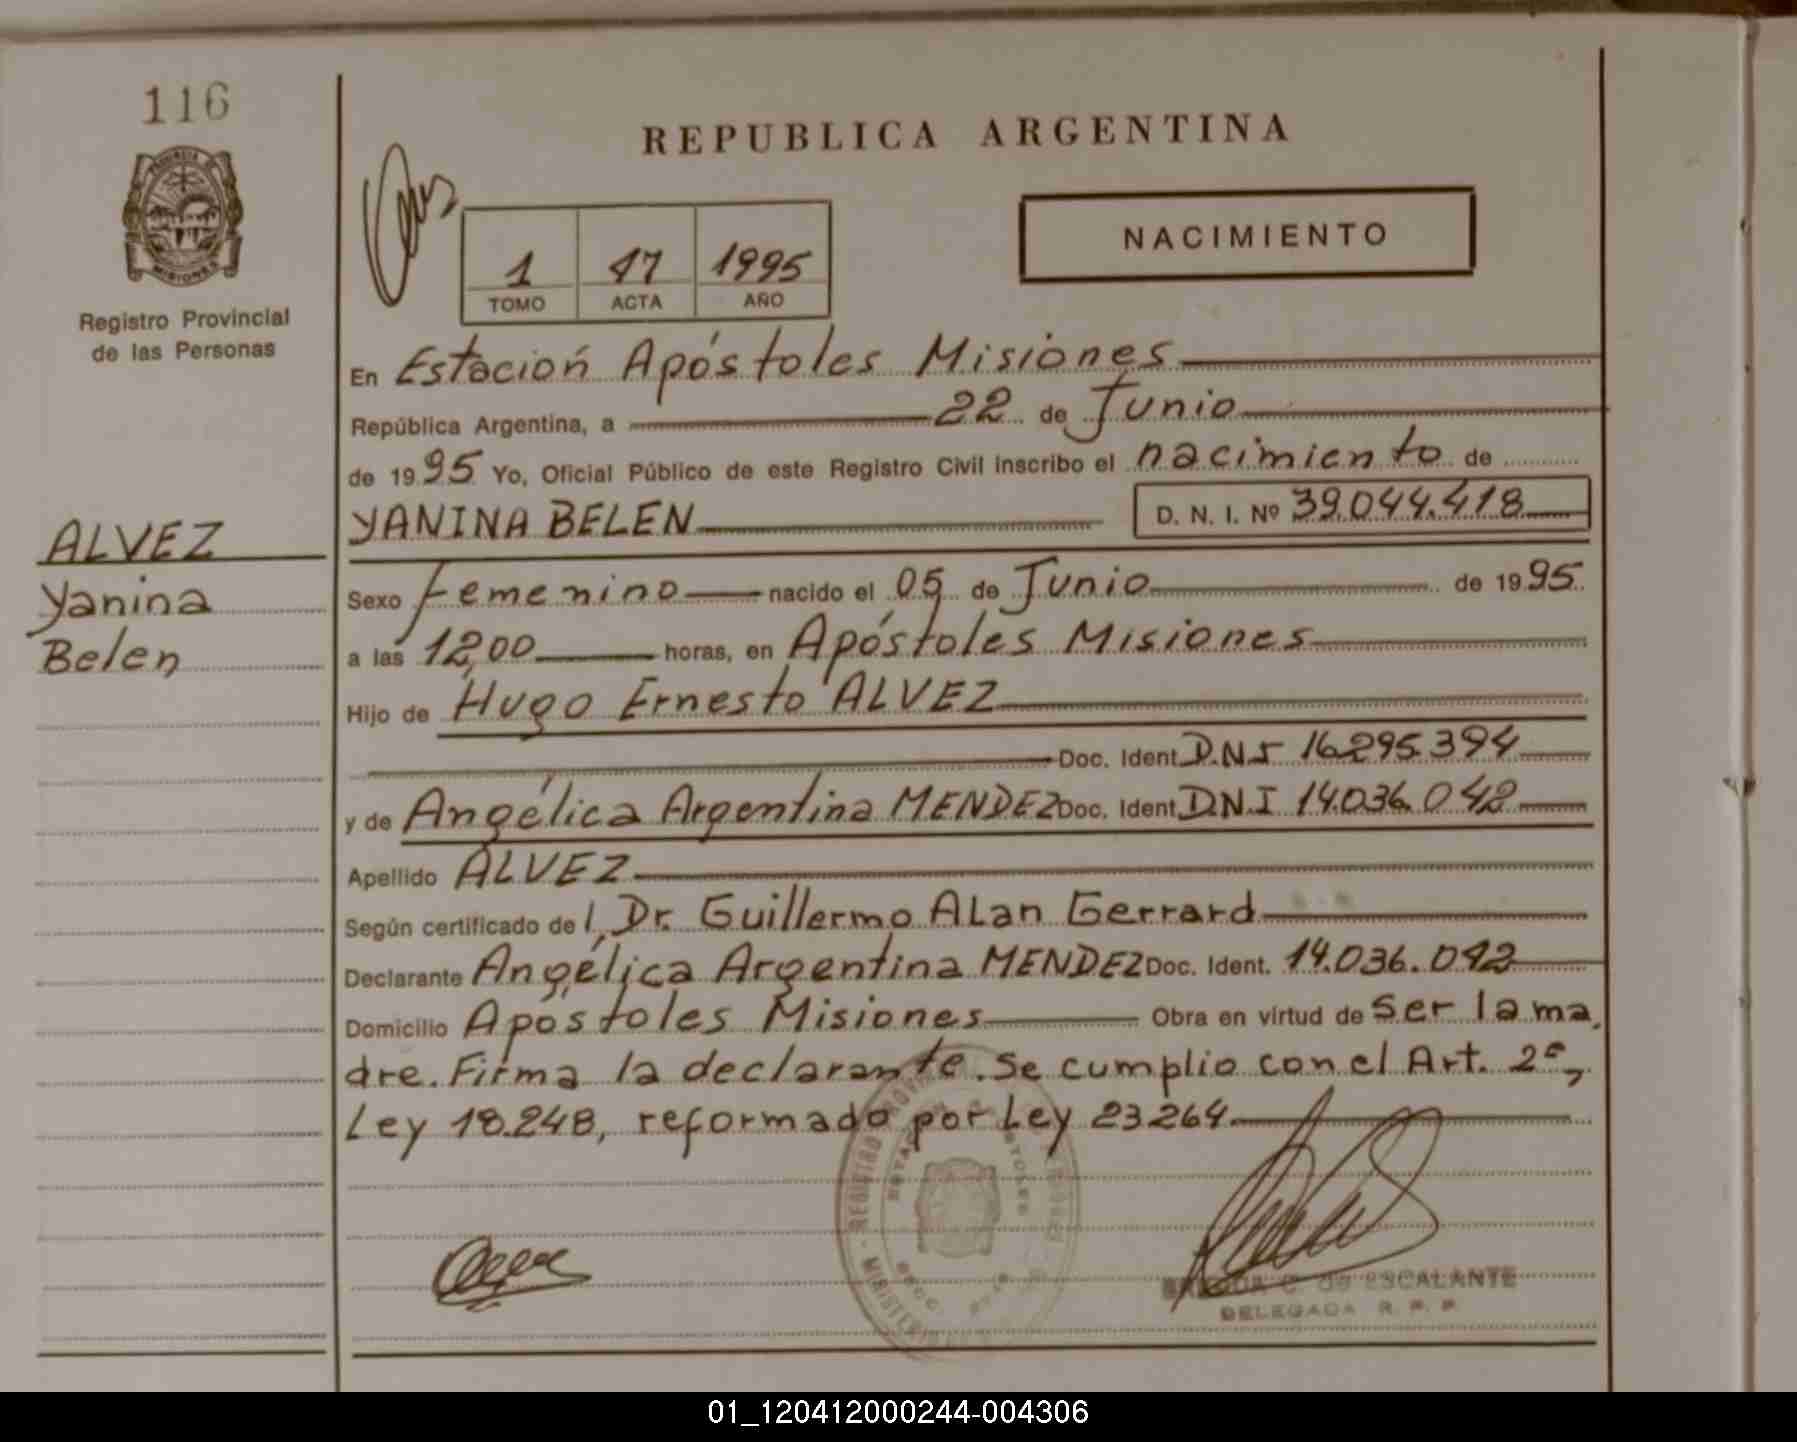 116
PROVINCIA DE
MISIONES
Registro Provincial
de las Personas
ALVEZ
Yanina
Belen
REPUBLICA ARGENTINA
1 TOMO
47 ACTA
1995 AÑO
NACIMIENTO
En Estación Apóstoles Misiones
República Argentina, a 22 de Junio
de 1995 Yo, Oficial Público de este Registro Civil inscribo el nacimiento de
YANINA BELEN D. N. I. Nº 39.044.418
Sexo Femenino nacido el 05 de Junio de 1995
a las 12,00 horas, en Apóstoles Misiones
Hijo de Hugo Ernesto ALVEZ
Doc. Ident D.N.I 16.295.394
y de Angélica Argentina MENDEZ Doc. Ident D.N.I 14.036.042
Apellido ALVEZ
Según certificado de l, Dr. Guillermo ALan Gerrard
Declarante Angélica Argentina MENDEZ Doc. Ident. 14.036.042
Domicilio Apóstoles Misiones Obra en virtud de ser la ma
dre. Firma la declarante. Se cumplio con el Art. 2º,
Ley 18.248, reformado por Ley 23264
C. de ESCALANTE
DELEGADA R. P. P.
01_120412000244-004306